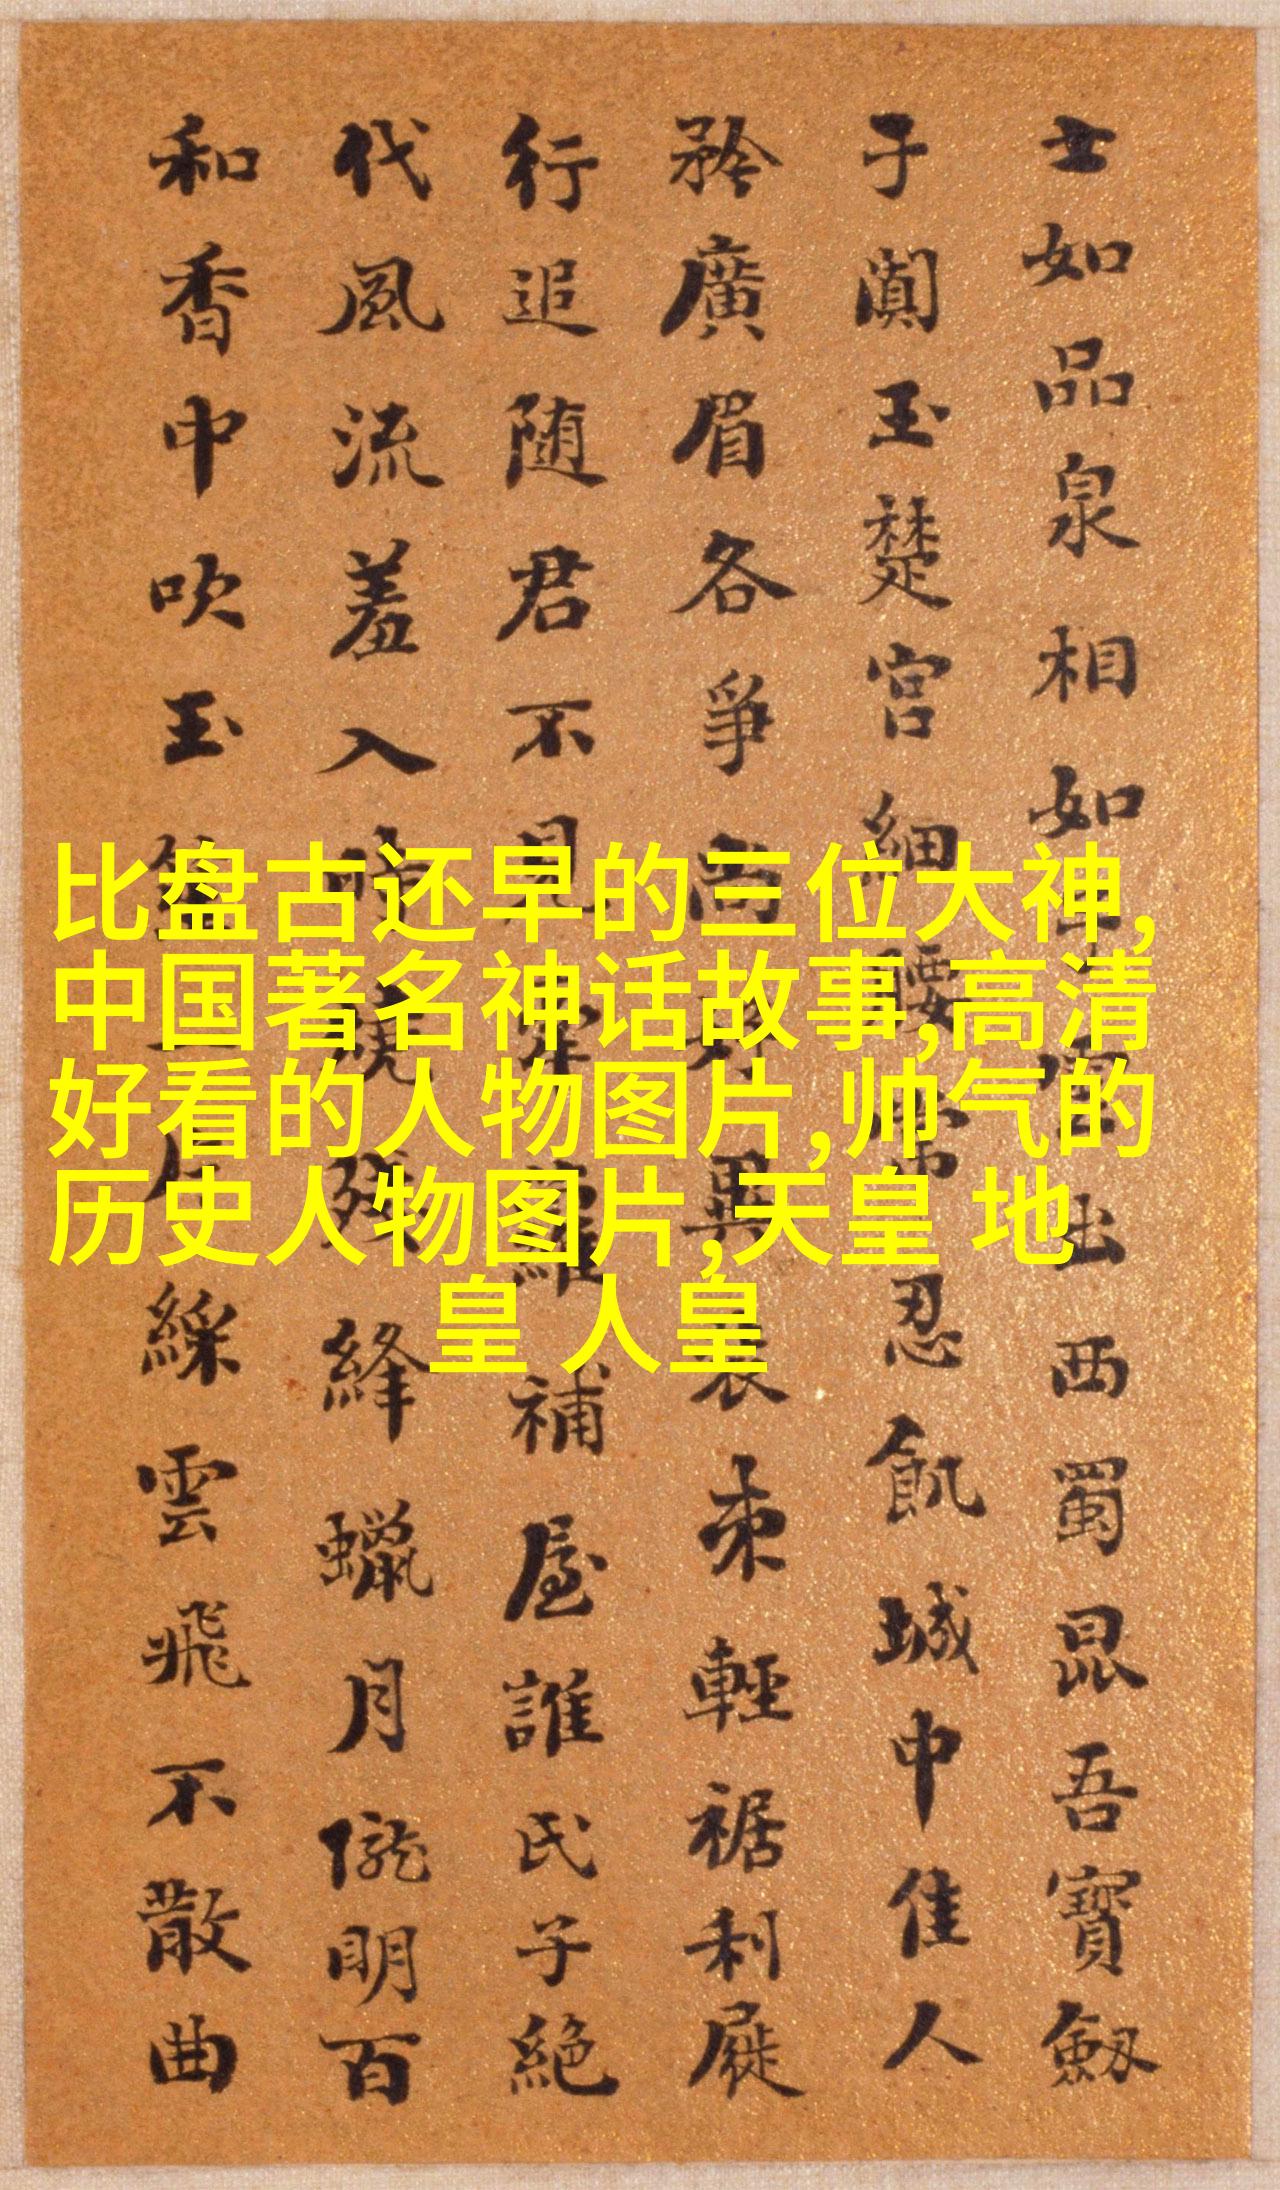 士如品泉相如
出西蜀昆吾寶劔
于闐玉楚宮細腰
忍飢城中佳人
矜廣眉各爭尚
異裝束輕裾利屣
行追随君不見
蘿補屋誰氏子絕
代風流羞入時
殘絳蠟月朧明百
和香中吹玉
綵雲飛不散曲
比盘古还早的三位大神,
中国著名神话故事,高清
好看的人物图片,帅气的
历史人物图片,天皇 地
皇 人皇